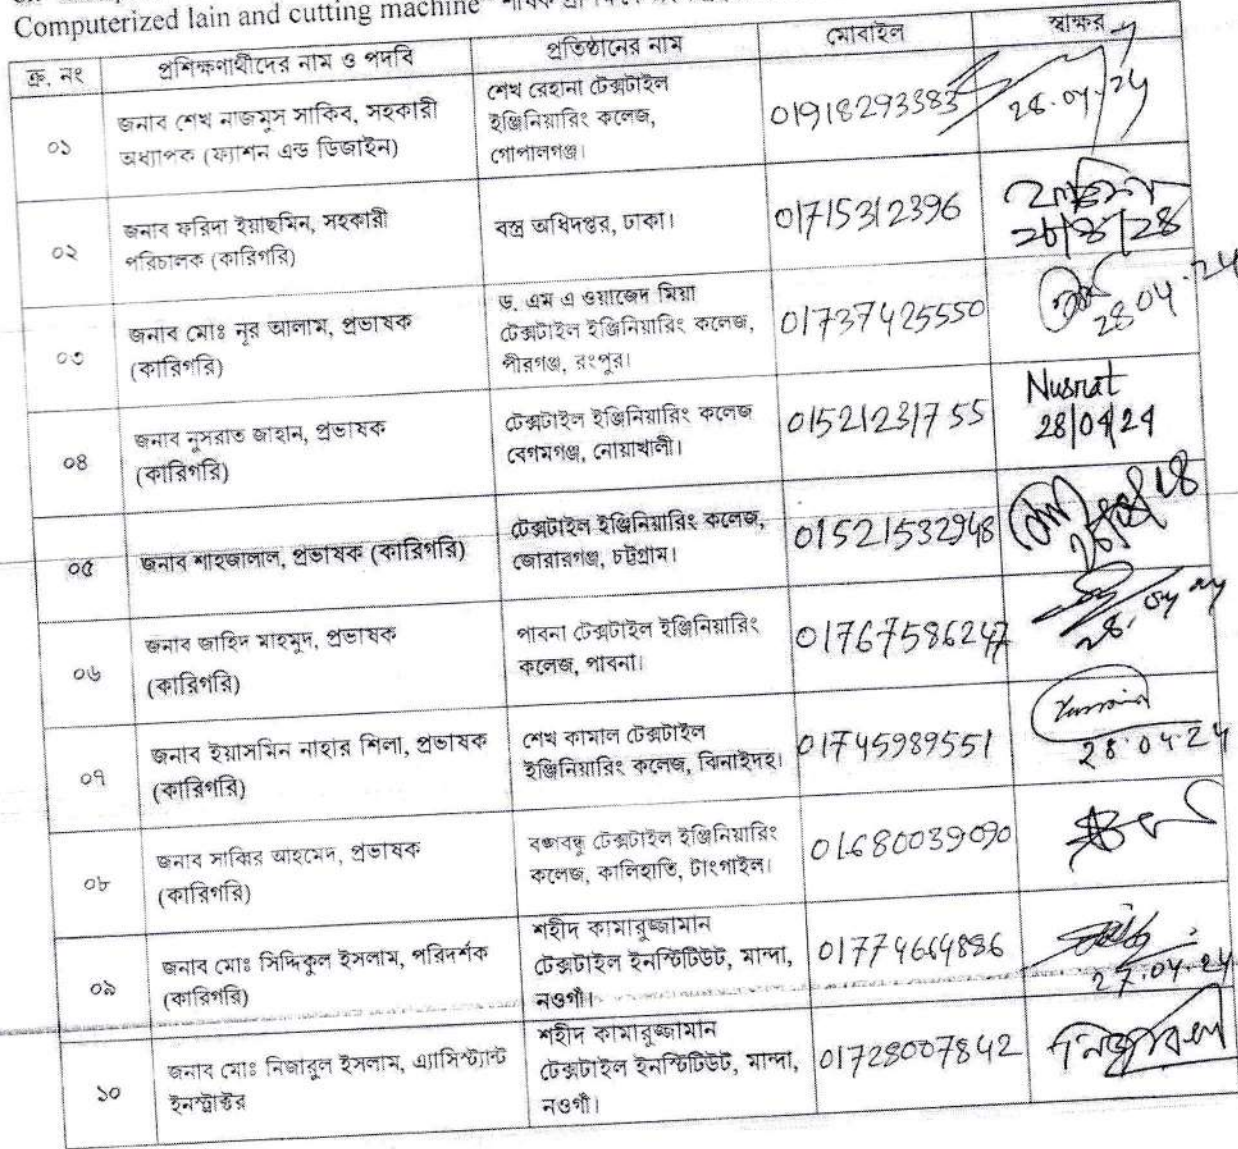 Computerized lain and cutting machine"
ক্র. নং প্রশিক্ষণার্থীদের নাম ও পদবি প্রতিষ্ঠানের নাম মোবাইল স্বাক্ষর
০১ জনাব শেখ নাজমুস সাকিব, সহকারী অধ্যাপক (ফ্যাশন এন্ড ডিজাইন)
শেখ রেহানা টেক্সটাইল
ইঞ্জিনিয়ারিং কলেজ,
গোপালগঞ্জ।
01918293383
28.04.24
০২ জনাব ফরিদা ইয়াছমিন, সহকারী
পরিচালক (কারিগরি)
বস্ত্র অধিদপ্তর, ঢাকা।
01715312396
২৮/৪/২৪
০৩ জনাব মোঃ নূর আলাম, প্রভাষক
(কারিগরি)
ড. এম এ ওয়াজেদ মিয়া
টেক্সটাইল ইঞ্জিনিয়ারিং কলেজ,
পীরগঞ্জ, রংপুর।
01737425550
28.04.24
০৪ জনাব নুসরাত জাহান, প্রভাষক
(কারিগরি)
টেক্সটাইল ইঞ্জিনিয়ারিং কলেজ
বেগমগঞ্জ, নোয়াখালী।
01521231755
Nusrat
28/04/24
০৫ জনাব শাহজালাল, প্রভাষক (কারিগরি)
টেক্সটাইল ইঞ্জিনিয়ারিং কলেজ,
জোরারগঞ্জ, চট্টগ্রাম।
01521532948
০৬ জনাব জাহিদ মাহমুদ, প্রভাষক
(কারিগরি)
পাবনা টেক্সটাইল ইঞ্জিনিয়ারিং
কলেজ, পাবনা।
01767586247
28.04.24
০৭ জনাব ইয়াসমিন নাহার শিলা, প্রভাষক
(কারিগরি)
শেখ কামাল টেক্সটাইল
ইঞ্জিনিয়ারিং কলেজ, ঝিনাইদহ।
01745989551
28.04.24
০৮ জনাব সাব্বির আহমেদ, প্রভাষক
(কারিগরি)
বঙ্গবন্ধু টেক্সটাইল ইঞ্জিনিয়ারিং
কলেজ, কালিহাতি, টাংগাইল।
01680039090
০৯ জনাব মোঃ সিদ্দিকুল ইসলাম, পরিদর্শক
(কারিগরি)
শহীদ কামারুজ্জামান
টেক্সটাইল ইনস্টিটিউট, মান্দা,
নওগাঁ।
01774664886
27.04.24
১০ জনাব মোঃ নিজারুল ইসলাম, এ্যাসিস্ট্যান্ট
ইনস্ট্রাক্টর
শহীদ কামারুজ্জামান
টেক্সটাইল ইনস্টিটিউট, মান্দা,
নওগাঁ।
01728007842